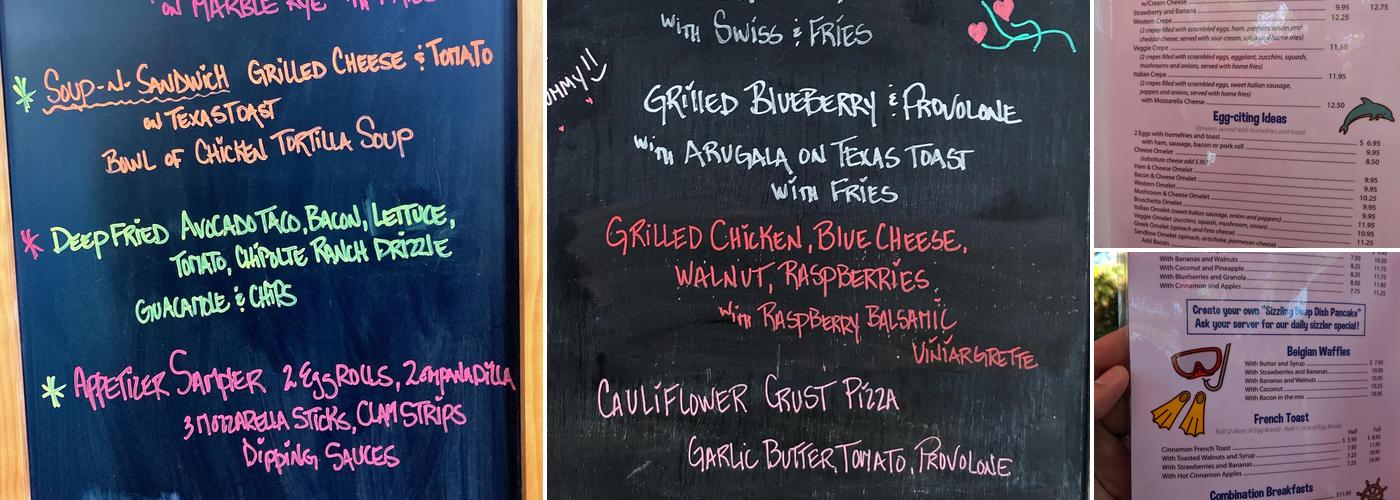 ON MARBLE RYE
SOUP-N-SANDWICH GRILLED CHEESE & TOMATO
ON TEXAS TOAST
BOWL OF CHICKEN TORTILLA SOUP
DEEP FRIED AVOCADO TACO, BACON, LETTUCE,
TOMATO, CHIPOLTE RANCH DRIZZLE
GUACAMOLE & CHIPS
APPETIZER SAMPLER 2 EGGROLLS, 2 EMPANADILLA
3 MOZZARELLA STICKS, CLAM STRIPS
DIPPING SAUCES
WITH SWISS & FRIES
UMMY!!
GRILLED BLUEBERRY & PROVOLONE
WITH ARUGALA ON TEXAS TOAST
WITH FRIES
GRILLED CHICKEN, BLUE CHEESE,
WALNUT, RASPBERRIES,
WITH RASPBERRY BALSAMIC
VINIARGRETTE
CAULIFLOWER CRUST PIZZA
GARLIC BUTTER, TOMATO, PROVOLONE
w/Cream Cheese 12.75
Strawberry and Banana 9.95
Western Crepe 12.25
(2 crepes filled with scrambled eggs, ham, peppers, onion and
cheddar cheese, served with sour cream, salsa and home fries)
Veggie Crepe 11.50
(2 crepes filled with scrambled eggs, eggplant, zucchini, squash,
mushrooms and onions, served with home fries)
Italian Crepe 11.95
(2 crepes filled with scrambled eggs, sweet Italian sausage,
peppers and onions, served with home fries)
with Mozzarella Cheese 12.50
Egg-citing Ideas
Omelets served with homefries and toast
2 Eggs with homefries and toast $ 6.95
with ham, sausage, bacon or pork roll 9.95
Cheese Omelet 8.50
(substitute cheese add $.95)
Ham & Cheese Omelet 9.95
Bacon & Cheese Omelet 9.95
Western Omelet 10.25
Mushroom & Cheese Omelet 9.95
Bruschetta Omelet 9.95
Italian Omelet (sweet Italian sausage, onion and peppers) 11.95
Veggie Omelet (zucchini, squash, mushroom, onion) 10.95
Greek Omelet (spinach and Feta cheese) 11.25
Sandbox Omelet (spinach, artichoke, parmesan cheese)
Add Bacon
With Bananas and Walnuts 7.50 10.50
With Coconut and Pineapple 8.25 11.75
With Blueberries and Granola 8.25 11.75
With Cinnamon and Apples 8.50 11.95
7.75 11.25
Create your own "Sizzling Deep Dish Pancake"
Ask your server for our daily sizzler special!
Belgian Waffles
With Butter and Syrup $ 7.95
With Strawberries and Bananas 10.95
With Bananas and Walnuts 10.95
With Coconut 10.25
With Bacon in the mix 10.95
French Toast
Full (2 slices of Egg Bread) Half (1 slice of Egg Bread)
Half Full
Cinnamon French Toast $ 5.95 $ 8.95
With Toasted Walnuts and Syrup 7.95 11.95
With Strawberries and Bananas 7.25 10.95
With Hot Cinnamon Apples 7.25 10.95
Combination Breakfasts
$11.95